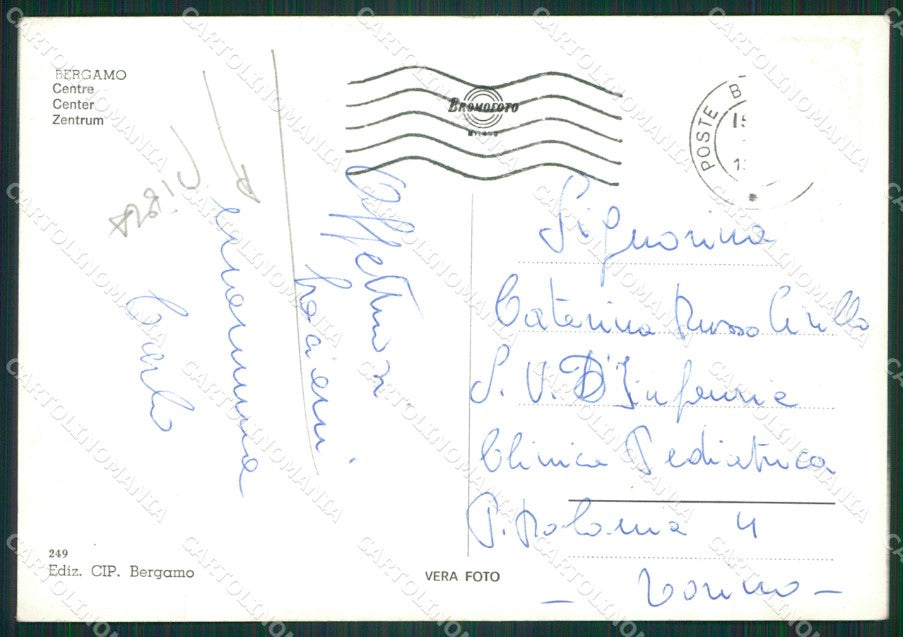 BERGAMO
Centre
Center
Zentrum
BROMOFOTO
MILANO
POSTE B
15
1
Affettuosi
bacioni
mamma
Carlo
Signorina
Caterina Russo Cirillo
S. V. D'Inferme
Clinica Pediatrica
P. Polonia 4
- Torino -
249
Ediz. CIP. Bergamo
VERA FOTO
CARTOLINOMANIA